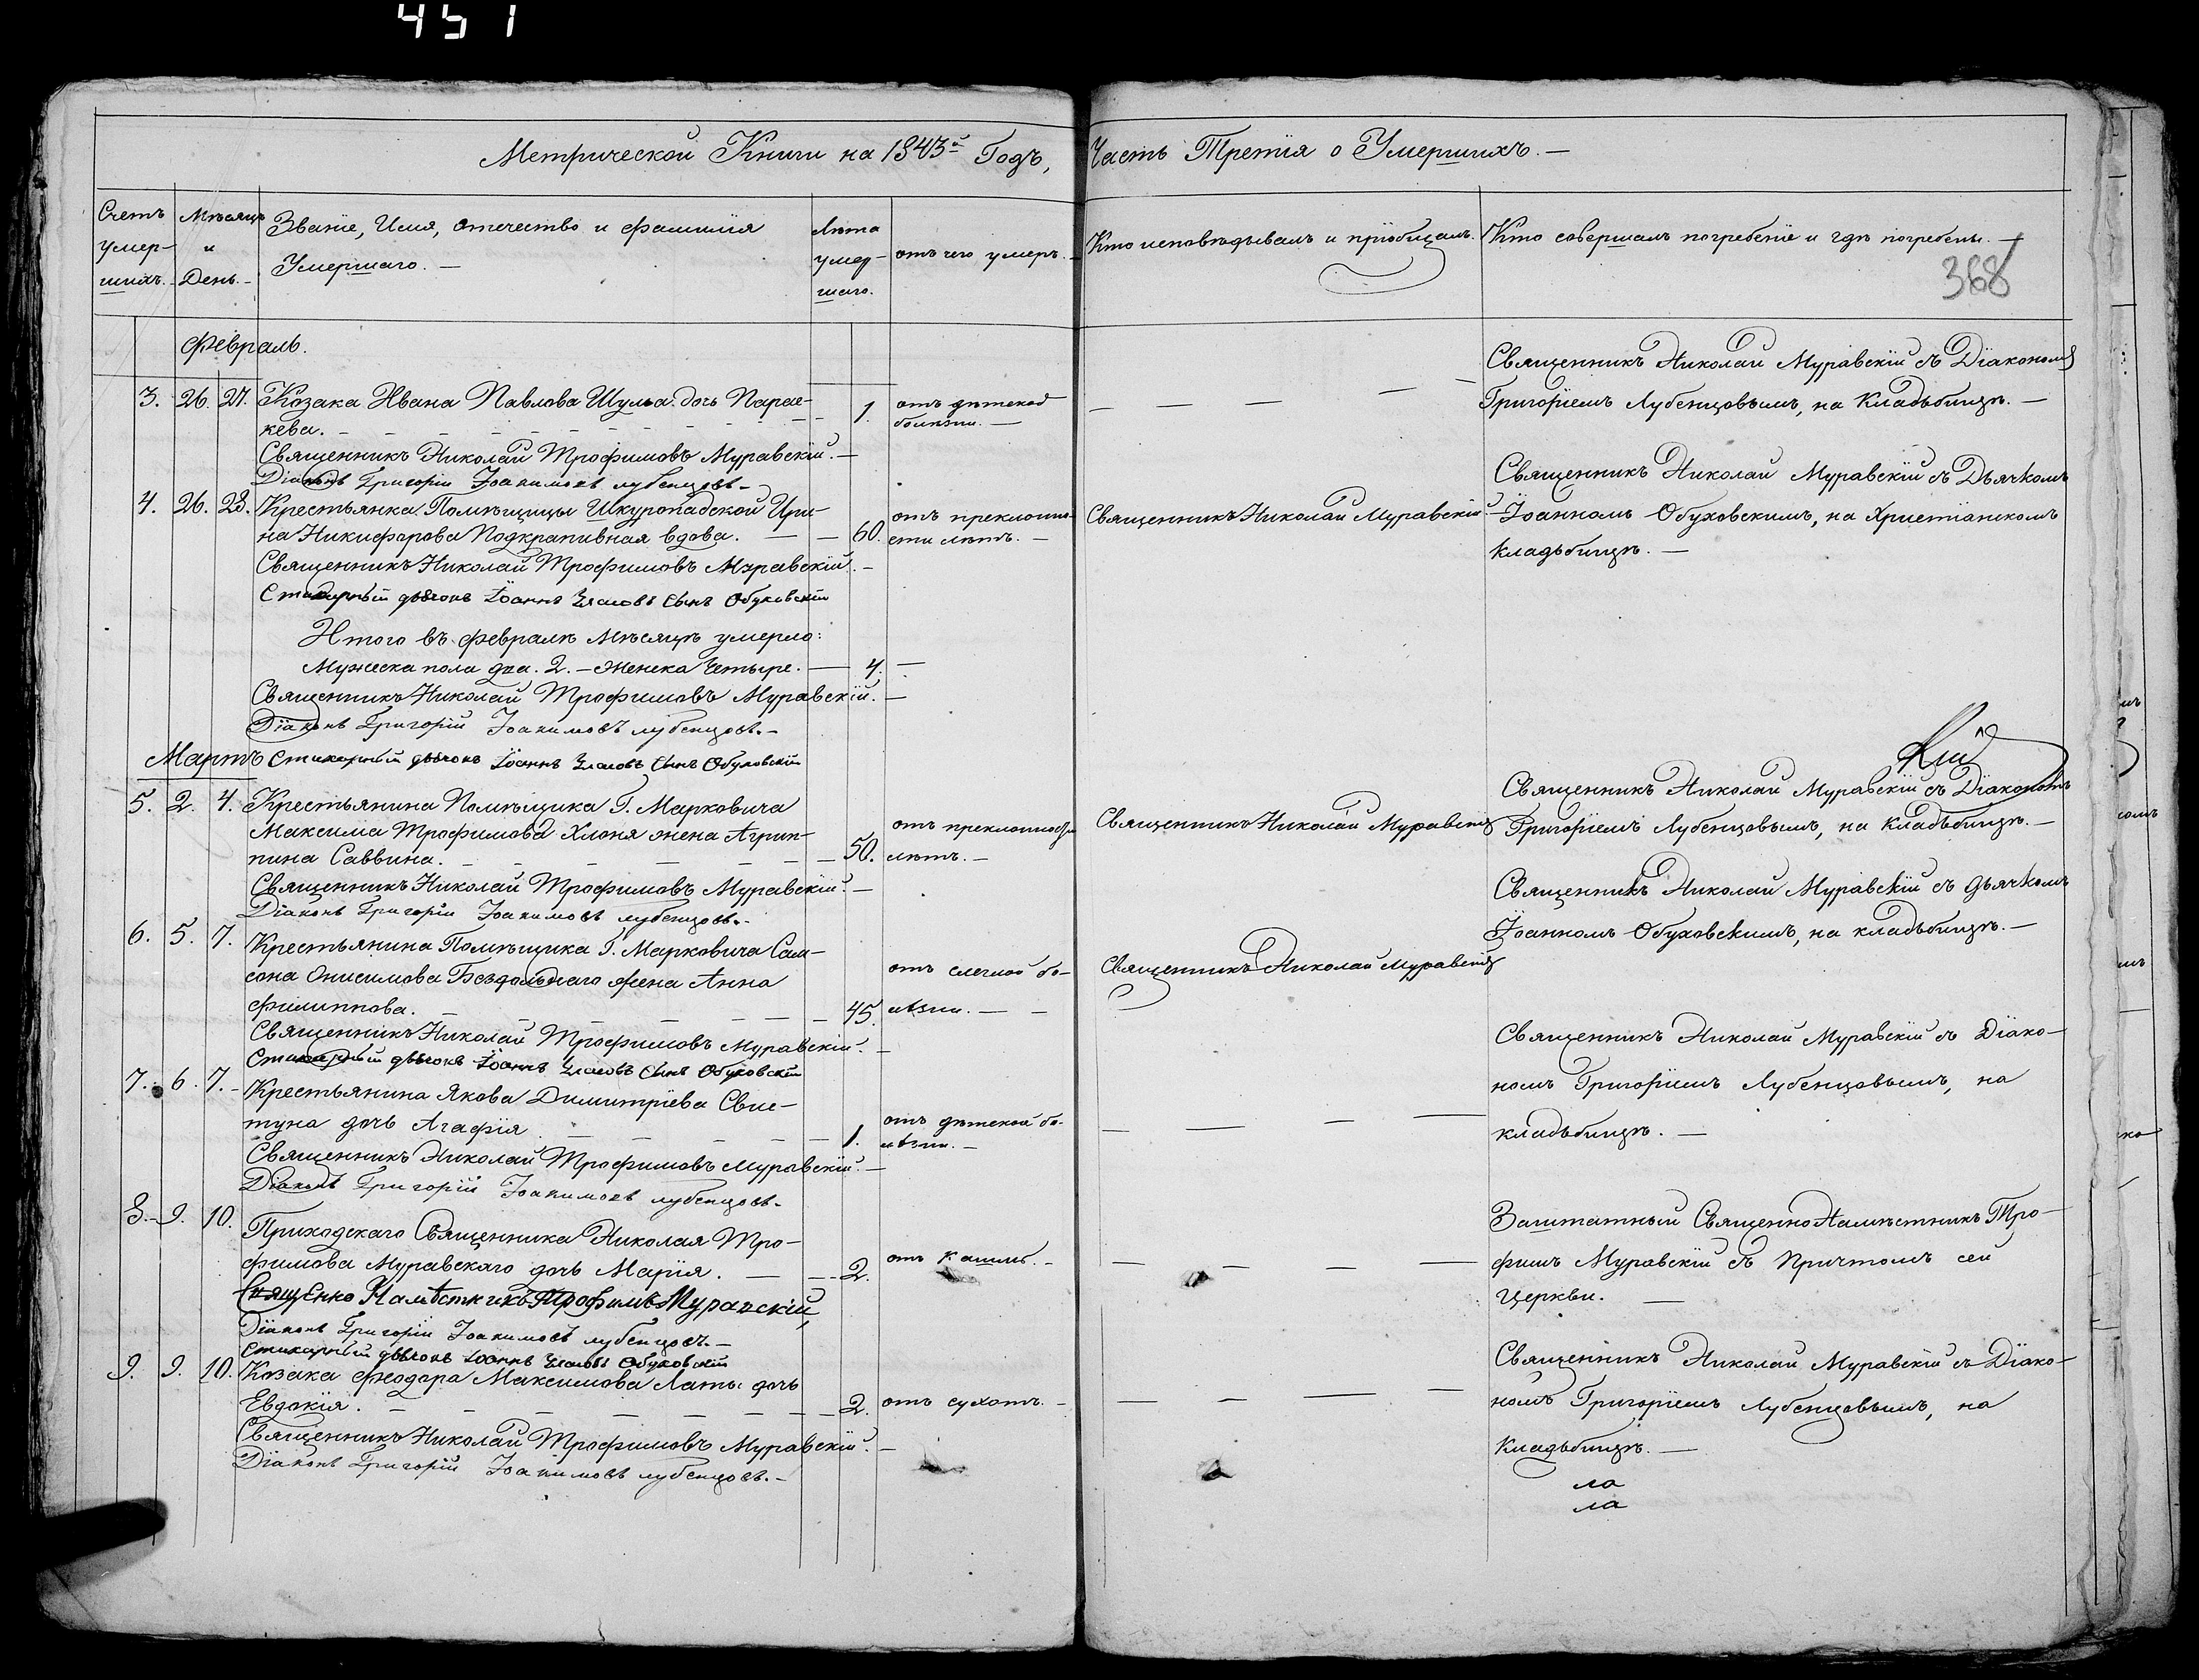 451
Метрической Книги на 1843й Годъ, Часть Третія о Умершихъ. —
Счетъ умер-шихъ. —
Мѣсяцъ и День. —
Званіе, Имя, отечество и фамилія
Умершаго. —
Лѣта умер-шаго.
отъ чего умеръ. —
Кто исповѣдывалъ и пріобщалъ.
Кто совершалъ погребеніе и гдѣ погребены. —
368
Февраль.
3. 26. 27. Козака Ивана Павлова Шульга дочь Параске-
кева. — 1. отъ дѣтской
болѣзни. —
Священникъ Николай Муравскій съ Діакономъ
Григоріемъ Лубенцовымъ, на Кладьбищѣ. —
Священникъ Николай Трофимовъ Муравскій. —
Діаконъ Григорій Іоакимовъ Лубенцовъ. —
4. 26. 28. Крестьянка Помѣщицы Шкуропадской Ири-
на Никифорова Подкрапивная вдова. — 60. отъ преклонно-
сти лѣтъ. —
Священникъ Николай Муравскій. —
Священникъ Николай Муравскій съ Дьячкомъ
Іоанномъ Обуховскимъ, на Христіанскомъ
кладьбищѣ. —
Священникъ Николай Трофимовъ Муравскій. —
Стихарный дьячокъ Іоаннъ сынъ Обуховскій
Итого въ февралѣ Мѣсяцѣ умерло:
Мужеска пола два. 2. — Женска Четыре. — 4. —
Священникъ Николай Трофимовъ Муравскій. —
Діаконъ Григорій Іоакимовъ Лубенцовъ. —
Мартъ Стихарный дьячокъ Іоаннъ сынъ Обуховскій
5. 2. 4. Крестьянина Помѣщика Г. Марковича
Максима Трофимова Хлоня жена Агрип-
пина Саввина. — 50. отъ преклонности
лѣтъ. —
Священникъ Николай Муравскій
Священникъ Николай Муравскій съ Діакономъ
Григоріемъ Лубенцовымъ, на кладьбищѣ. —
Священникъ Николай Трофимовъ Муравскій. —
Діаконъ Григорій Іоакимовъ Лубенцовъ. —
6. 5. 7. Крестьянина Помѣщика Г. Марковича Сам-
сона Онисимова Бездольнаго жена Анна
Филиппова. — 45. отъ бо-
лѣзни. —
Священникъ Николай Муравскій
Священникъ Николай Муравскій съ дьячкомъ
Іоанномъ Обуховскимъ, на кладьбищѣ. —
Священникъ Николай Трофимовъ Муравскій. —
Стихарный дьячокъ Іоаннъ сынъ Обуховскій
7. 6. 7. — Крестьянина Якова Димитріева Свис-
туна дочь Агафія — 1. отъ дѣтской бо-
лѣзни. —
Священникъ Николай Муравскій съ Діако-
номъ Григоріемъ Лубенцовымъ, на
кладьбищѣ. —
Священникъ Николай Трофимовъ Муравскій. —
Діаконъ Григорій Іоакимовъ Лубенцовъ. —
8. — 9. 10. Приходскаго Священника Николая Тро-
фимова Муравскаго дочь Марія. — 2. отъ кашля. —
Заштатный СвященноНамѣстникъ Тро-
фимъ Муравскій съ Причтомъ сей
Церкви. —
Священно Намѣстникъ Трофимъ Муравскій,
Діаконъ Григорій Іоакимовъ Лубенцовъ. —
Стихарный дьячокъ Іоаннъ Обуховскій
9. 9. 10. Козака Феодора Максимова Латы дочь
Евдокія. — 2. отъ сухотъ. —
Священникъ Николай Муравскій съ Діако-
номъ Григоріемъ Лубенцовымъ, на
Кладьбищѣ. —
Священникъ Николай Трофимовъ Муравскій. —
Діаконъ Григорій Іоакимовъ Лубенцовъ. —
ла
ла